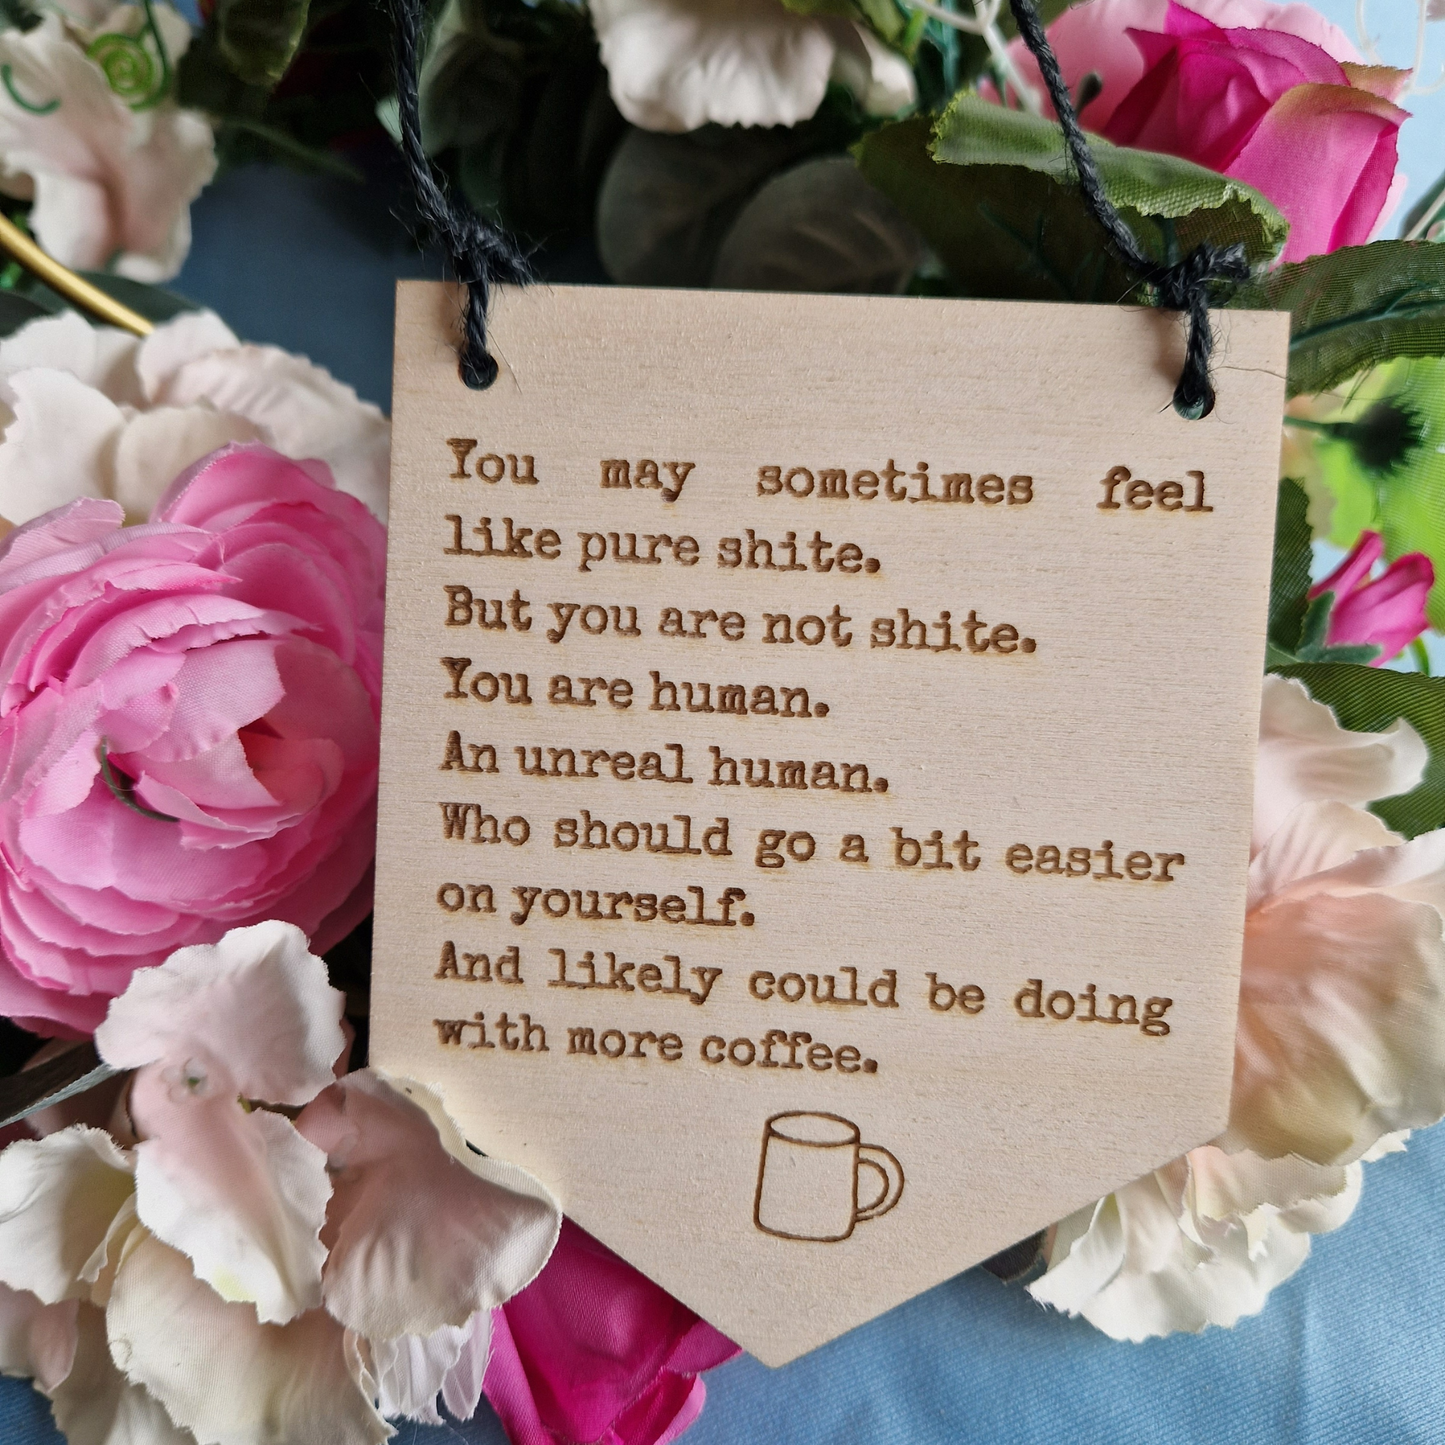 You may sometimes feel
like pure shite.
But you are not shite.
You are human.
An unreal human.
Who should go a bit easier
on yourself.
And likely could be doing
with more coffee.